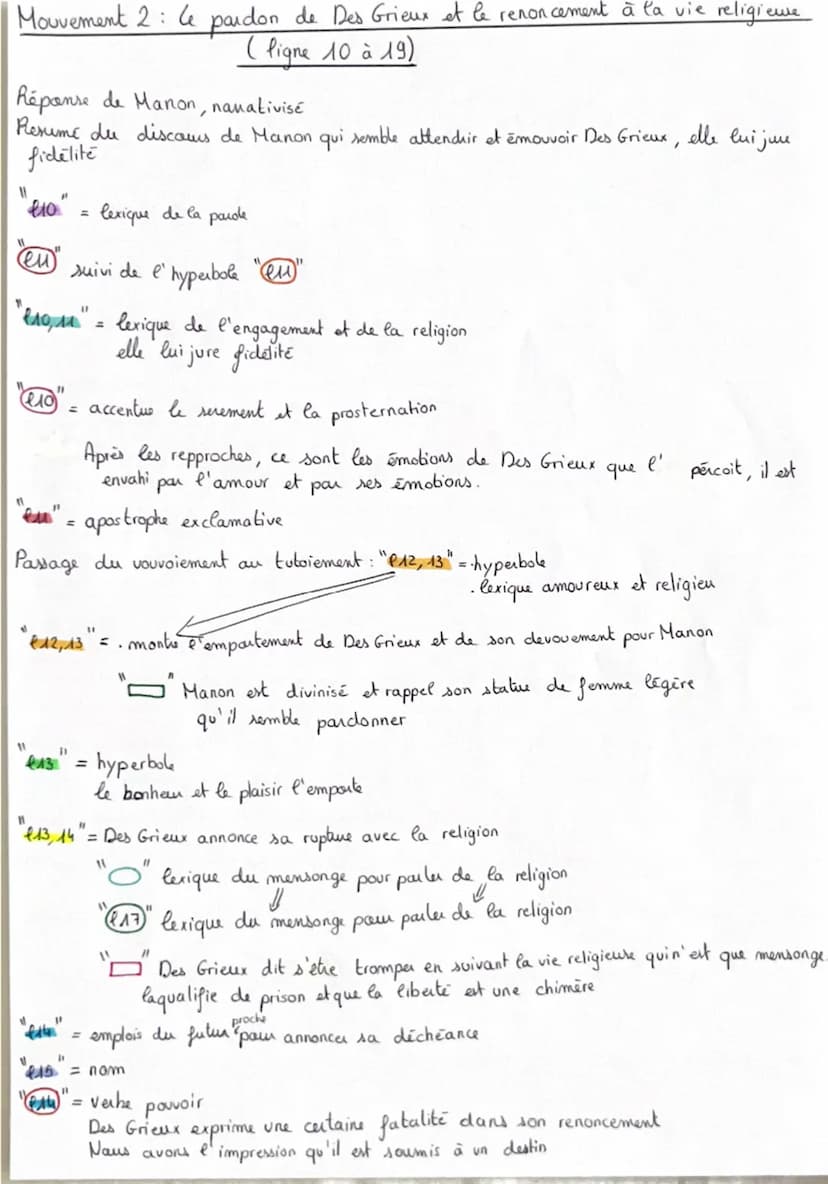 Mouvement 2 : Le pardon de Des Grieux et le renoncement à la vie religieuse
(ligne 10 à 19)
Réponse de Manon, narrativisé
Resumé du discours de Manon qui semble attendrir et émouvoir Des Grieux, elle lui jure
fidélité
"l10" = lexique de la parole
"l11" suivi de l'hyperbole "l11"
"l10,11" = lexique de l'engagement et de la religion
elle lui jure fidélité
"l10" = accentue le serement et la prosternation
Après les repproches, ce sont les émotions de Des Grieux que l' pércoit, il est
envahi par l'amour et par ses émotions.
"l11" = apostrophe exclamative
Passage du vouvoiement au tutoiement : "l12,13" = .hyperbole
. lexique amoureux et religieu
"l12,13" = . montre l'emportement de Des Grieux et de son devouement pour Manon
" " Manon est divinisé et rappel son statue de femme légère
qu'il semble pardonner
"l13" = hyperbole
le bonheur et le plaisir l'emporte
"l13,14" = Des Grieux annonce sa rupture avec la religion
" " lexique du mensonge pour parler de la religion
"l17" lexique du mensonge pour parler de la religion
" " Des Grieux dit s'être tromper en suivant la vie religieuse qui n'est que mensonge
la qualifie de prison et que la liberté est une chimère
"l14" = emplois du futur proche pour annoncer sa déchéance
"l15" = nom
"l14" = verbe pouvoir
Des Grieux exprime une certaine fatalité dans son renoncement
Nous avons l'impression qu'il est soumis à un destin